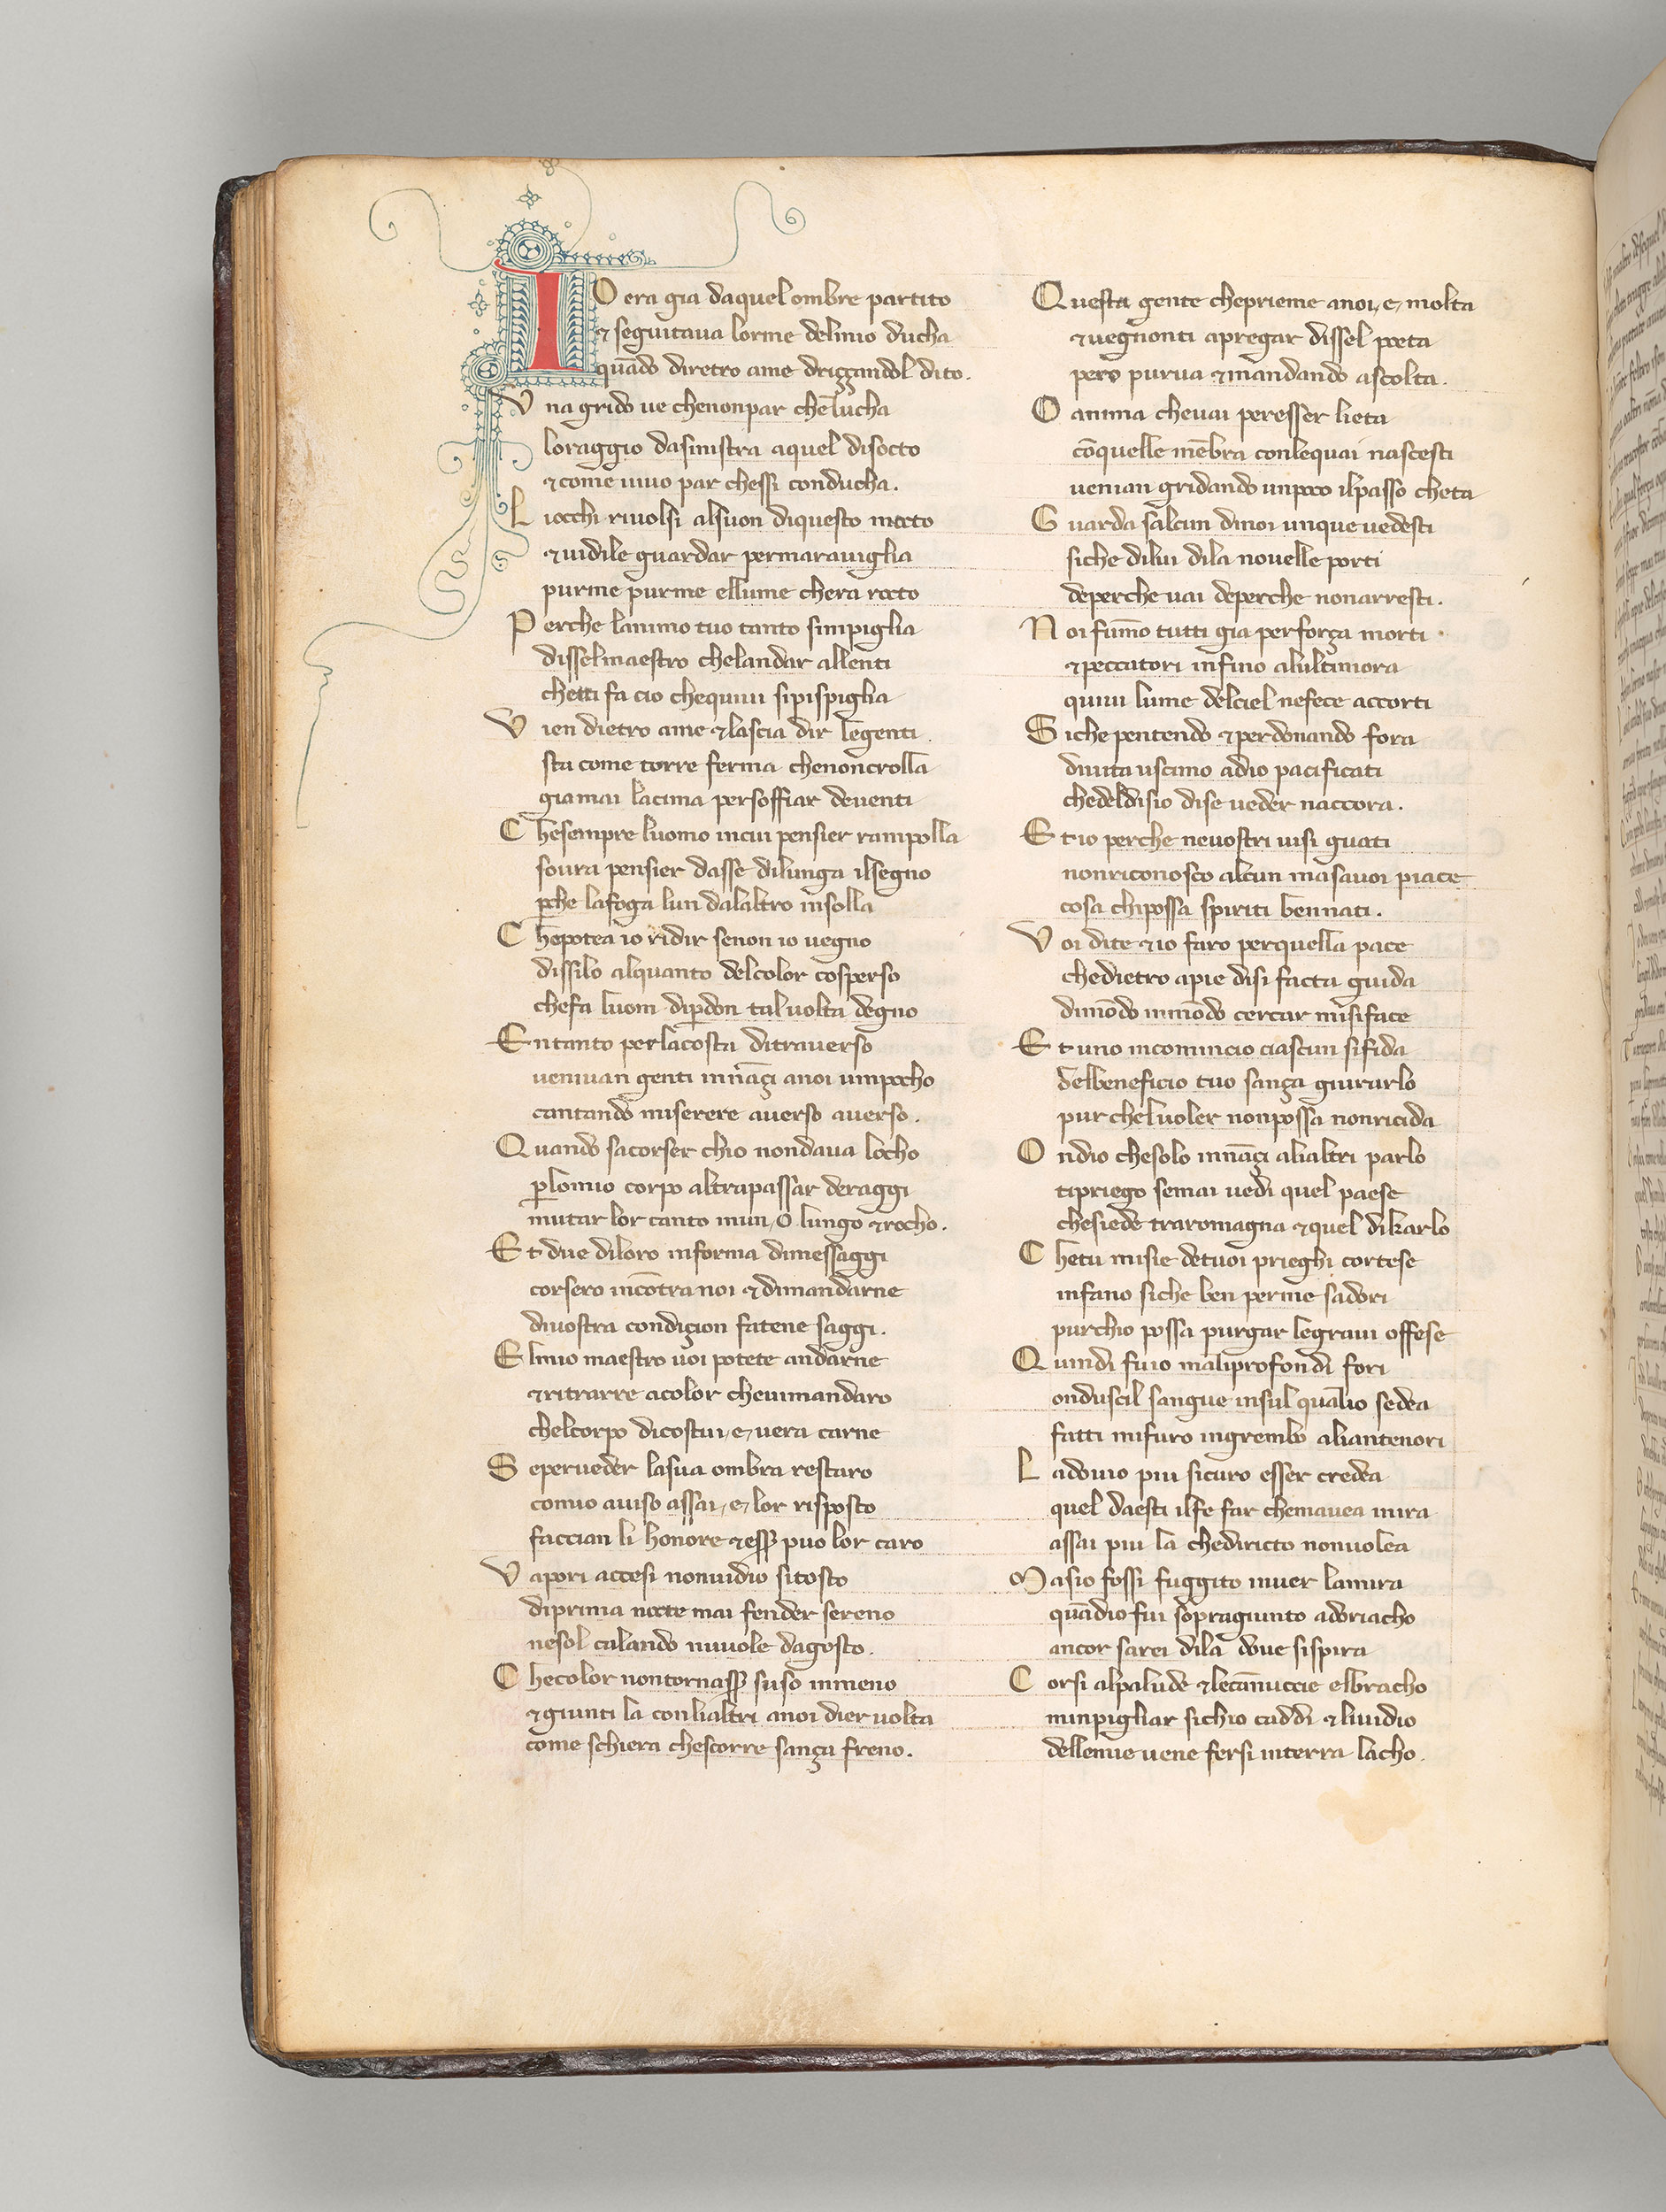 IO era gia daquel ombre partito
⁊ seguitaua lorme delmio ducha
quādo diretro ame driççandol dito.
Vna grido ue chenonpar chel lucha
loraggio dasinistra aquel disocto
⁊ come uiuo par chessi conducha.
Liocchi riuolsi alsuon diquesto mocto
⁊ uidile guardar permarauiglia
purme purme ellume chera rocto
Perche lanimo tuo tanto simpiglia
disselmaestro chelandar allenti
chetti fa cio chequiui sipispiglia
Vien dietro ame ⁊ lascia dir legenti
sta come torre ferma chenoncrolla
giamai lacima persoffiar deuenti
Chesempre luomo incui pensier rampolla
soura pensier dasse dilunga ilsegno
ꝑche lafoga lun dalaltro insolla
Chepotea io ridir senon io uegno
dissilo alquanto delcolor cosperso
chefa luom diꝑdon tal uolta degno
Entanto perlacosta ditrauerso
ueniuan genti innāçi anoi umpocho
cantando miserere auerso auerso.
Quando sacorser chio nondaua locho
ꝑlomio corpo altrapassar deraggi
mutar lor canto inun, O lungo ⁊ rocho.
Et due diloro informa dimessaggi
corsero incōtra noi ⁊ dimandarne
diuostra condiçion fatene saggi.
Elmio maestro uoi potete andarne
⁊ ritrarre acolor cheuimandaro
chelcorpo dicostui, e, uera carne
Seperueder lasua ombra restaro
comio auiso assai, e, lor risposto
faccian li honore ⁊ esser puo lor caro
Vapori accesi nonuidio sitosto
diprima nocte mai fender sereno
nesol calando nuuole dagosto.
Checolor nontornasser suso inmeno
⁊ giunti la conlialtri anoi dier uolta
come schiera chescorre sança freno.
Questa gente cheprieme anoi, e, molta
⁊ uegnonti apregar dissel poeta
pero purua ⁊ inandando ascolta.
O anima cheuai peresser lieta
cōquelle mēbra conlequai nascesti
uenian gridando unpoco ilpasso cheta
Guarda salcun dinoi unque uedesti
siche dilui dila nouelle porti
deperche uai deperche nonarresti.
Noi fumo tutti gia perforça morti
⁊ peccatori infino alultimora
quiui lume delciel nefece accorti
Siche pentendo ⁊ perdonando fora
diuita uscimo adio pacificati
chedeldisio dise ueder naccora.
Et io perche neuostri uisi guati
nonriconosco alcun masauoi piace
cosa chipossa spiriti bennati.
Voi dite ⁊ io faro perquella pace
chedietro apie disi facta guida
dimōdo inmōdo cercar misiface
Et uno incomincio ciascun sifida
delbeneficio tuo sança giurarlo
pur cheluoler nonpossa nonricida
Ondio chesolo innāçi alialtri parlo
tipriego semai uedi quel paese
chesiede traromagna ⁊ quel dikarlo
Chetu misie detuoi prieghi cortese
infano siche ben perme sadori
purchio possa purgar legraui offese
Quindi fuio maliprofondi fori
onduscil sangue insul qualio sedea
fatti mifuro ingrembo aliantenori
Ladouio piu sicuro esser credea
quel daesti ilfe far chemauea inira
assai piu la chediricto nonuolea
Masio fossi fuggito inuer lamira
quādio fui sopragiunto adoriacho
ancor sarei dila doue sispira
Corsi alpalude ⁊ lecānuccie elbracho
minpigliar sichio caddi ⁊ liuidio
dellemie uene fersi interra lacho.